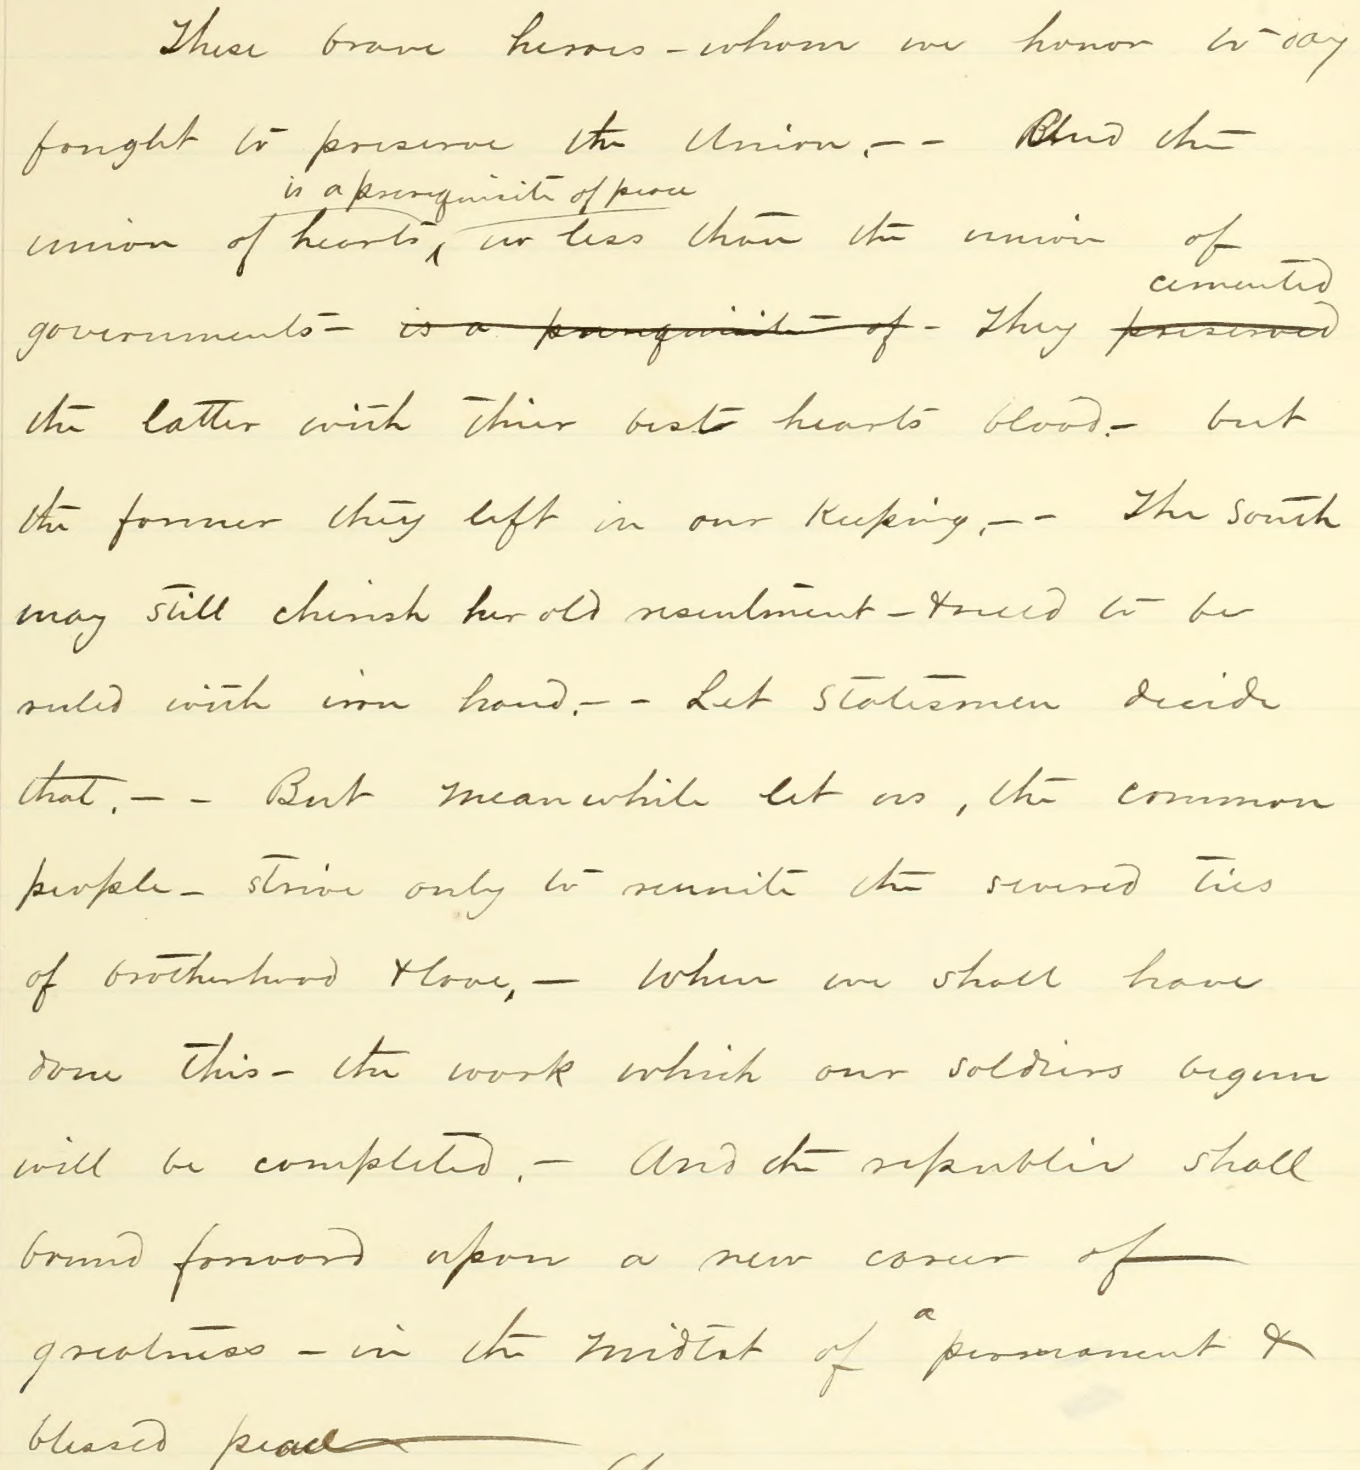 These brave heroes - whom we honor to-day
fought to preserve the Union. - - But the
is a prerequisite of peace
union of hearts, no less than the union of
cemented
governments - is a prerequisite of - They preserved
the latter with thier best hearts blood. - but
the former they left in our Keeping. - - The South
may still cherish her old resentment - & need to be
ruled with iron hand. - - Let Statesmen decide
that. - - But meanwhile let us, the common
people - strive only to reunite the severed ties
of brotherhood & love, - When we shall have
done this - the work which our soldiers begun
will be completed. - And the republic shall
bound forward upon a new career of
a
greatness - in the midtst of permanent &
blessed peace